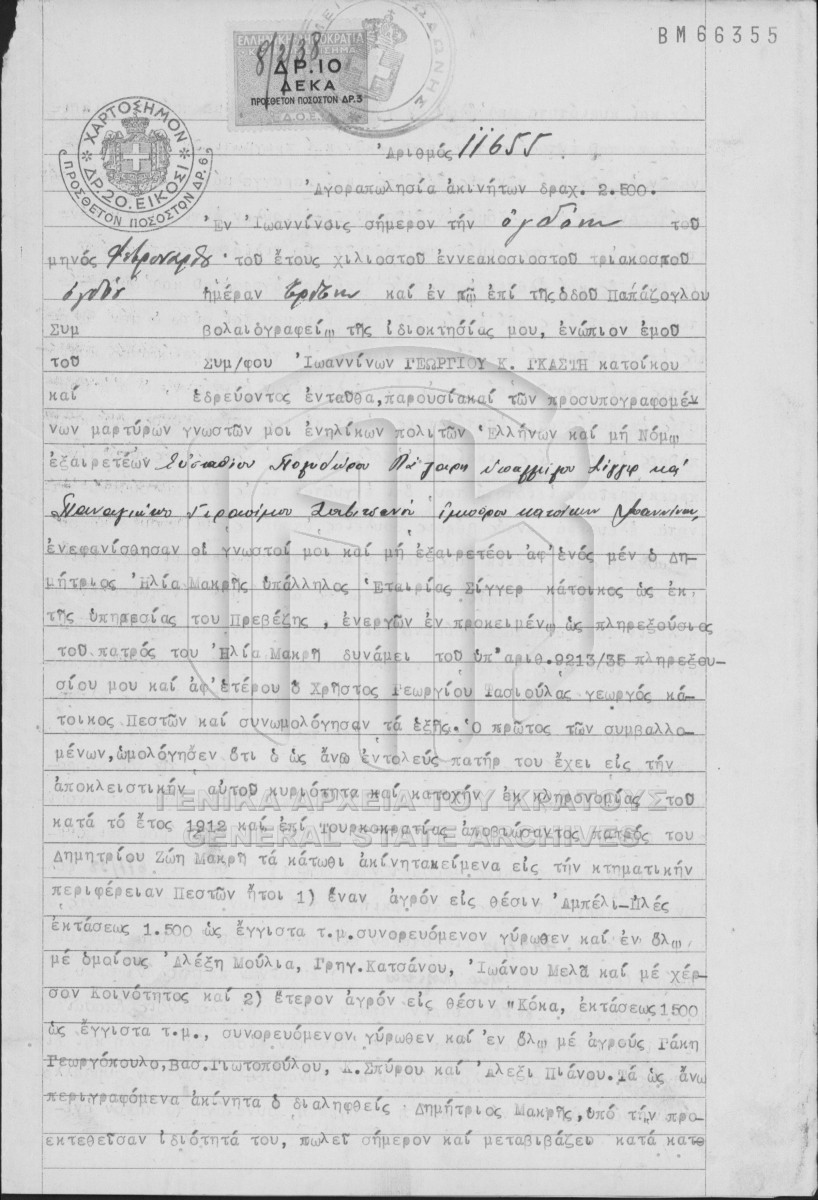 ΒΜ66355
ΕΛΛΗΝΙΚΗ ΔΗΜΟΚΡΑΤΙΑ
8/2/38
ΔΡ.10
ΔΕΚΑ
ΠΡΟΣΘΕΤΟΝ ΠΟΣΟΣΤΟΝ ΔΡ.3
ΧΑΡΤΟΣΗΜΟΝ
ΔΡ.20.ΕΙΚΟΣΙ
ΠΡΟΣΘΕΤΟΝ ΠΟΣΟΣΤΟΝ ΔΡ.6
Ἀριθμός 11655
Ἀγοραπωλησία ἀκινήτων δραχ. 2.500.
Ἐν Ἰωαννίνοις σήμερον τήν ὀγδόην τοῦ
μηνός Φεβρουαρίου τοῦ ἔτους χιλιοστοῦ ἐννεακοσιοστοῦ τριακοστοῦ
ὀγδόου ἡμέραν Τρίτην καί ἐν τῷ ἐπί τῆς ὁδοῦ Παπάζογλου
Συμ βολαιογραφείῳ τῆς ἰδιοκτησίας μου, ἐνώπιον ἐμοῦ
τοῦ Συμ/φου Ἰωαννίνων ΓΕΩΡΓΙΟΥ Κ. ΓΚΑΣΤΗ κατοίκου
καί ἑδρεύοντος ἐνταῦθα,παρουσίᾳκαί τῶν προσυπογραφομέ-
νων μαρτύρων γνωστῶν μοι ἐνηλίκων πολιτῶν Ἑλλήνων καί μή Νόμῳ
ἐξαιρετέων Εὐσταθίου Πολυδώρου ὑπαλλήλου Σίγγερ καί
Παναγιώτου Γερασίμου ἐμπόρου κατοίκων Ἰωαννίνων,
ἐνεφανίσθησαν οἱ γνωστοί μοι καί μή ἐξαιρετέοι ἀφ'ἑνός μέν ὁ Δη-
μήτριος Ἠλία Μακρῆς ὑπάλληλος Ἑταιρίας Σίγγερ κάτοικος ὡς ἐκ
τῆς ὑπηρεσίας του Πρεβέζης , ἐνεργῶν ἐν προκειμένῳ ὡς πληρεξούσιος
τοῦ πατρός του Ἠλία Μακρῆ δυνάμει τοῦ ὑπ'ἀριθ.9213/35 πληρεξου-
σίου μου καί ἀφ'ἑτέρου ὁ Χρῆστος Γεωργίου Τασιούλας γεωργός κά-
τοικος Πεστῶν καί συνωμολόγησαν τά ἑξῆς. Ὁ πρῶτος τῶν συμβαλλο-
μένων,ὡμολόγησεν ὅτι ὁ ὡς ἄνω ἐντολεύς πατήρ του ἔχει εἰς τήν
ἀποκλειστικήν αὐτοῦ κυριότητα καί κατοχήν ἐκ κληρονομίας τοῦ
ΓΕΝΙΚΑ ΑΡΧΕΙΑ ΤΟΥ ΚΡΑΤΟΥΣ
κατά τό ἔτος 1912 καί ἐπί Τουρκοκρατίας ἀποβιώσαντος πατρός του
GENERAL STATE ARCHIVES
Δημητρίου Ζώη Μακρῆ τά κάτωθι ἀκίνητακείμενα εἰς τήν κτηματικήν
περιφέρειαν Πεστῶν ἤτοι 1) ἕναν ἀγρόν εἰς θέσιν Ἀμπέλι-Πλές
ἐκτάσεως 1.500 ὡς ἔγγιστα τ.μ.συνορευόμενον γύρωθεν καί ἐν ὅλῳ
μέ ὁμοίους Ἀλέξη Μούλια, Γρηγ.Κατσάνου, Ἰωάνου Μελᾶ καί μέ χέρ-
σον Κοινότητος καί 2) ἕτερον ἀγρόν εἰς θέσιν "Κόκα, ἐκτάσεως 1500
ὡς ἔγγιστα τ.μ., συνορευόμενον γύρωθεν καί ἐν ὅλῳ μέ ἀγρούς Γάκη
Γεωργόπουλο,Βασ.Γιωτοπούλου, Α.Σπύρου καί Ἀλέξι Πιάνου.Τά ὡς ἄνω
περιγραφόμενα ἀκίνητα ὁ διαληφθείς Δημήτριος Μακρῆς,ὑπό τήν προ-
εκτεθεῖσαν ἰδιότητά του, πωλεῖ σήμερον καί μεταβιβάζει κατά κατο